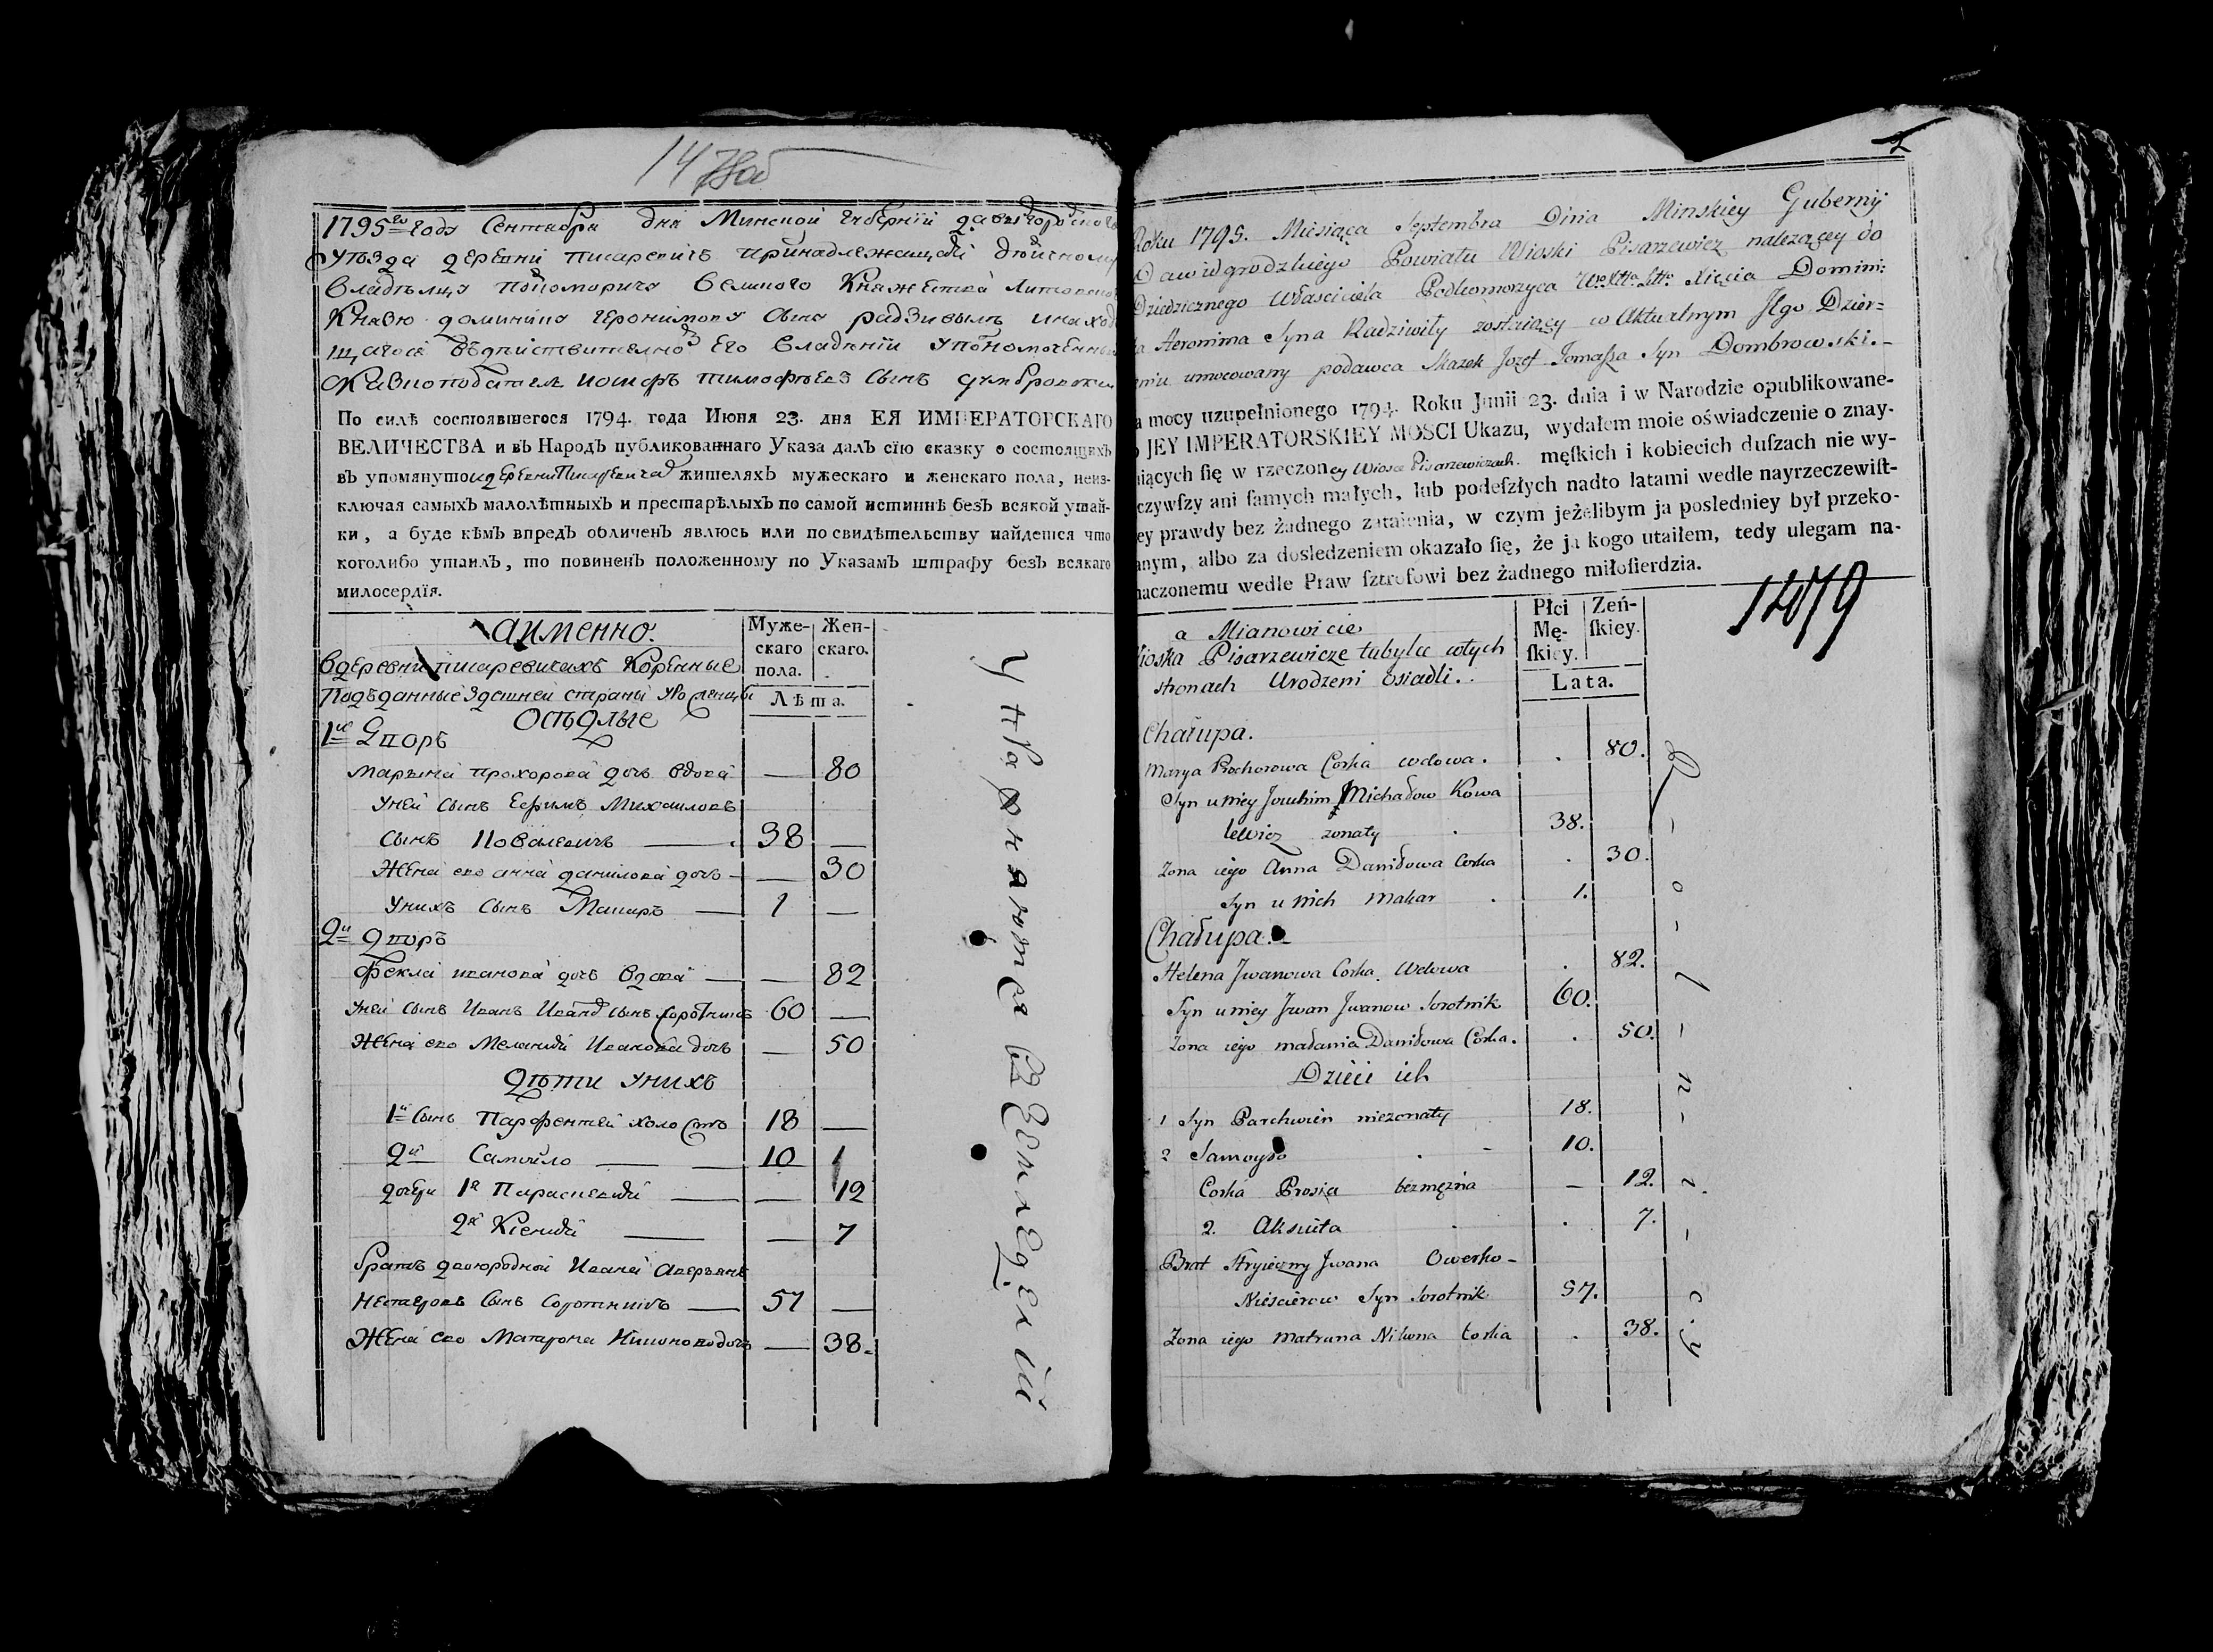 14
1795го годя Сентября дня Минской Губерніи давыдгородскаго
уѣзда деревни писаревичь принадлежащей
владѣльцу подкоморичу великого Княжества Литовского
Князю доминику геронимову сыну радзивылъ
вѣдѣйствително его владѣніи уполномоченный
сказкоподатель иосифъ тимофѣевъ сынъ думбровски
По силѣ состоявшегося 1794. года Июня 23. дня ЕЯ ИМПЕРАТОРСКАГО
ВЕЛИЧЕСТВА и въ НародЪ публикованнаго Указа далЪ сїю сказку о состоящихЪ
въ упомянутой деревни Писаревичах жителяхЪ мужескаго и женскаго пола, неиз-
ключая самыхЪ малолѣтныхЪ и престарѣлыхЪ по самой истиннѣ безЪ всякой утай-
ки, а буде кѣмЪ впредЪ обличенЪ явлюсь или по свидѣтельству найдется что
коголибо утаилЪ, то повиненЪ положенному по УказамЪ штрафу безЪ всякаго
милосердїя.
аименно.
Муже-
скаго
пола.
Жен-
скаго.
вдеревни писаревичахъ Коренные
Подъданные здешней страны уроженцы
Лѣта.
Осѣдлые
1й Дворъ
Марьяна прохорова дочь вдова — 80
Уней сынъ Ефимъ Михаиловъ
сынъ Ковалевичь — 38 —
Жена его анна данилова дочь — — 30
Унихъ сынъ Макаръ — 1 —
2й Дворъ
Фекла иванова дочь вдова — — 82
Уней сынъ Иванъ Ивановъ сынъ Соротникъ 60 —
Жена его Мелания Иванова дочь — 50
Дѣти унихъ
1й сынъ Парфентей холостъ 18 —
2й Самойло — — 10
дочери 1я Параскевия — — 12
2я Ксения — — 7
братъ двоюродной Ивана Аверьянъ
Нестеровъ сынъ Соротникъ — 57 —
Жена его Матрона Никонова дочь — 38
Roku 1795. Miesiąca Septembra Dnia Minskiey Guberny
Dawidgrodzkiego Powiatu Wioski Pisarzewicz nalezącey do
Dziedzicznego Własciciela Podkomorzyca Xięcia Domini:
ka Heronima Syna Radziwiły zostaiący w Aktualnym Jego Dzier=
eniu umocowany podawca Skazek Jozef Tomasza Syn Dombrowski.-
a mocy uzupełnionego 1794. Roku Junii 23. dnia i w Narodzie opublikowane-
o JEY IMPERATORSKIEY MOSCI Ukazu, wydałem moie oświadczenie o znay-
uiących ſię w rzeczoney Wiosce Pisarzewiczach. męſkich i kobiecich duſzach nie wy-
czywſzy ani ſamych małych, lub podeſzłych nadto latami wedle nayrzeczewiſt-
ey prawdy bez żadnego zataienia, w czym jeżelibym ja posledniey był przeko-
anym, albo za dosledzeniem okazało ſię, że ja kogo utaiłem, tedy ulegam na-
naczonemu wedle Praw ſztrofowi bez żadnego miłoſierdzia.
1479
a Mianowicie
Płci
Mę-
ſkiey.
Zeń-
ſkiey.
Wioska Pisarzewicze tubylcy wtych
stronach Urodzeni Osiadli..
Lata.
Chałupa.
Marya Prochorowa Corka wdowa. . 80.
Syn u niey Jouchim Michałow Kowa
lewicz zonaty . 38.
Zona iego Anna Daniłowa Corka . 30.
Syn u Nich Makar . 1.
Chałupa.-
Helena Jwanowa Corka Wdowa . 82.
Syn u niey Jwan Jwanow Sorotnik 60.
Zona iego małania Daniłowa Corka. . 50.
Dzieci ich
1 Syn Parchwien niezonaty 18.
2 Samoyło . - 10.
Corka Prosia bezmężna — 12.
2. Aksiuta . . 7.
Brat Stryieczny Jwana Owerko-
Niescierow Syn Sorotnik 57.
Zona iego Matruna Nikona Corka . 38.